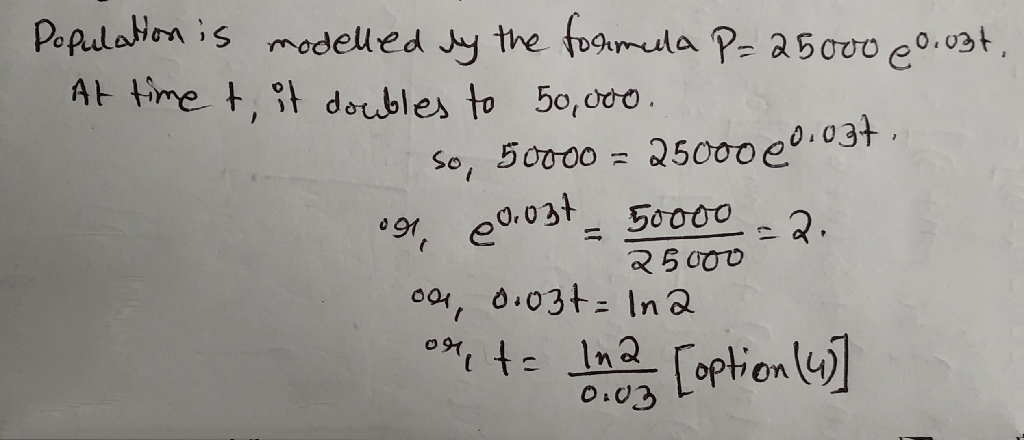 Population is modelled by the formula P= 25000 e^0.03t.
At time t, it doubles to 50,000.
so, 50000 = 25000 e^0.03t.
or, e^0.03t = 50000/25000 = 2.
or, 0.03t = ln 2
or, t = ln 2/0.03 [option (4)]